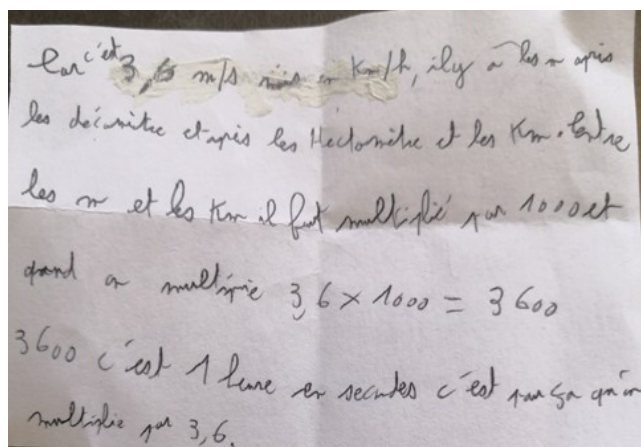 Car c'est 3,6 m/s mis en Km/h, il y a les m après
les décamètre et après les Hectomètre et les Km. Entre
les m et les Km il faut multiplié par 1000 et
quand on multiplie 3,6 x 1000 = 3600
3600 c'est 1 heure en secondes c'est par ça qu'on
multiplie par 3,6.